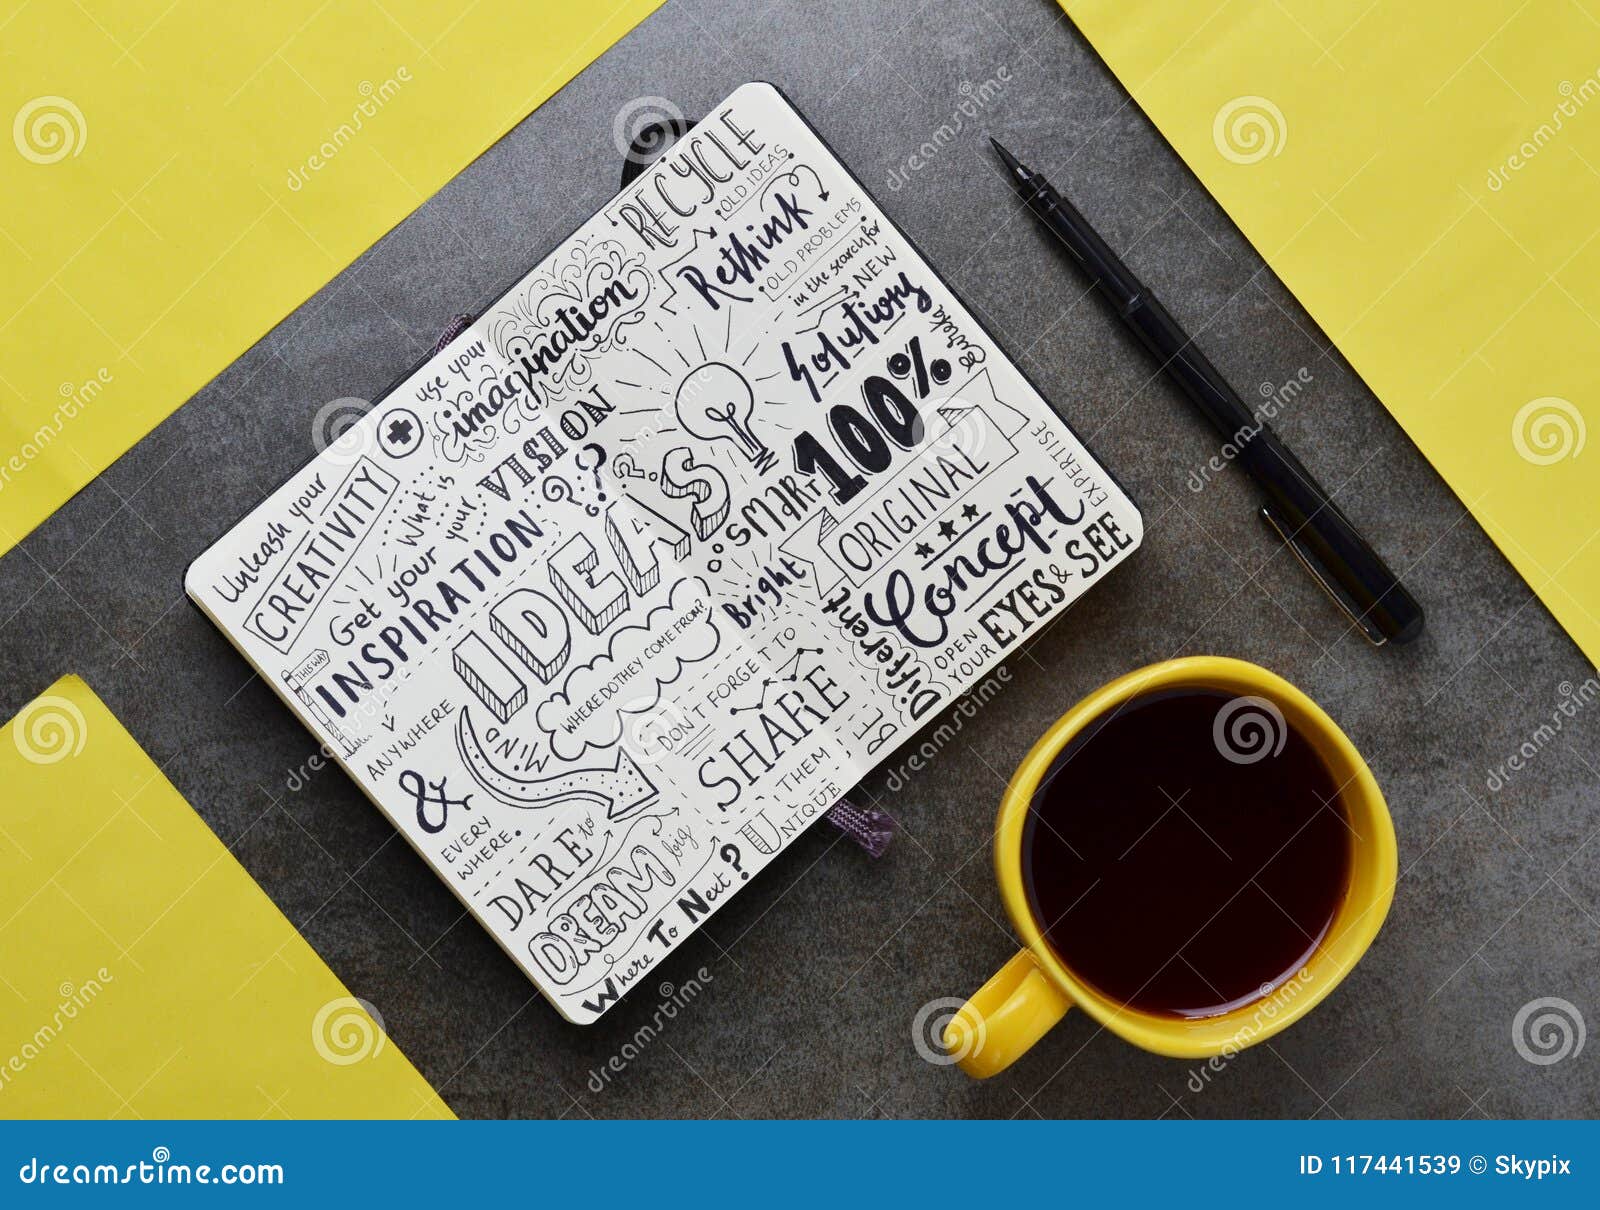 Unleash your
CREATIVITY
use your
imagination
What is
your
VISION
??
?
Get your
INSPIRATION
THIS WAY
ANYWHERE
&
EVERY
WHERE.
IDEAS
WHERE DO THEY COME FROM?
MIND
DARE to
DREAM big
Where To Next?
RECYCLE
OLD IDEAS
Rethink
OLD PROBLEMS
in the search for
NEW
Solutions
SMART
Bright
100%
ORIGINAL
Concept
BE Different
OPEN
YOUR
EYES & SEE
EXPERTISE
DON'T FORGET TO
SHARE
THEM
UNIQUE
dreamstime.com
ID 117441539 © Skypix